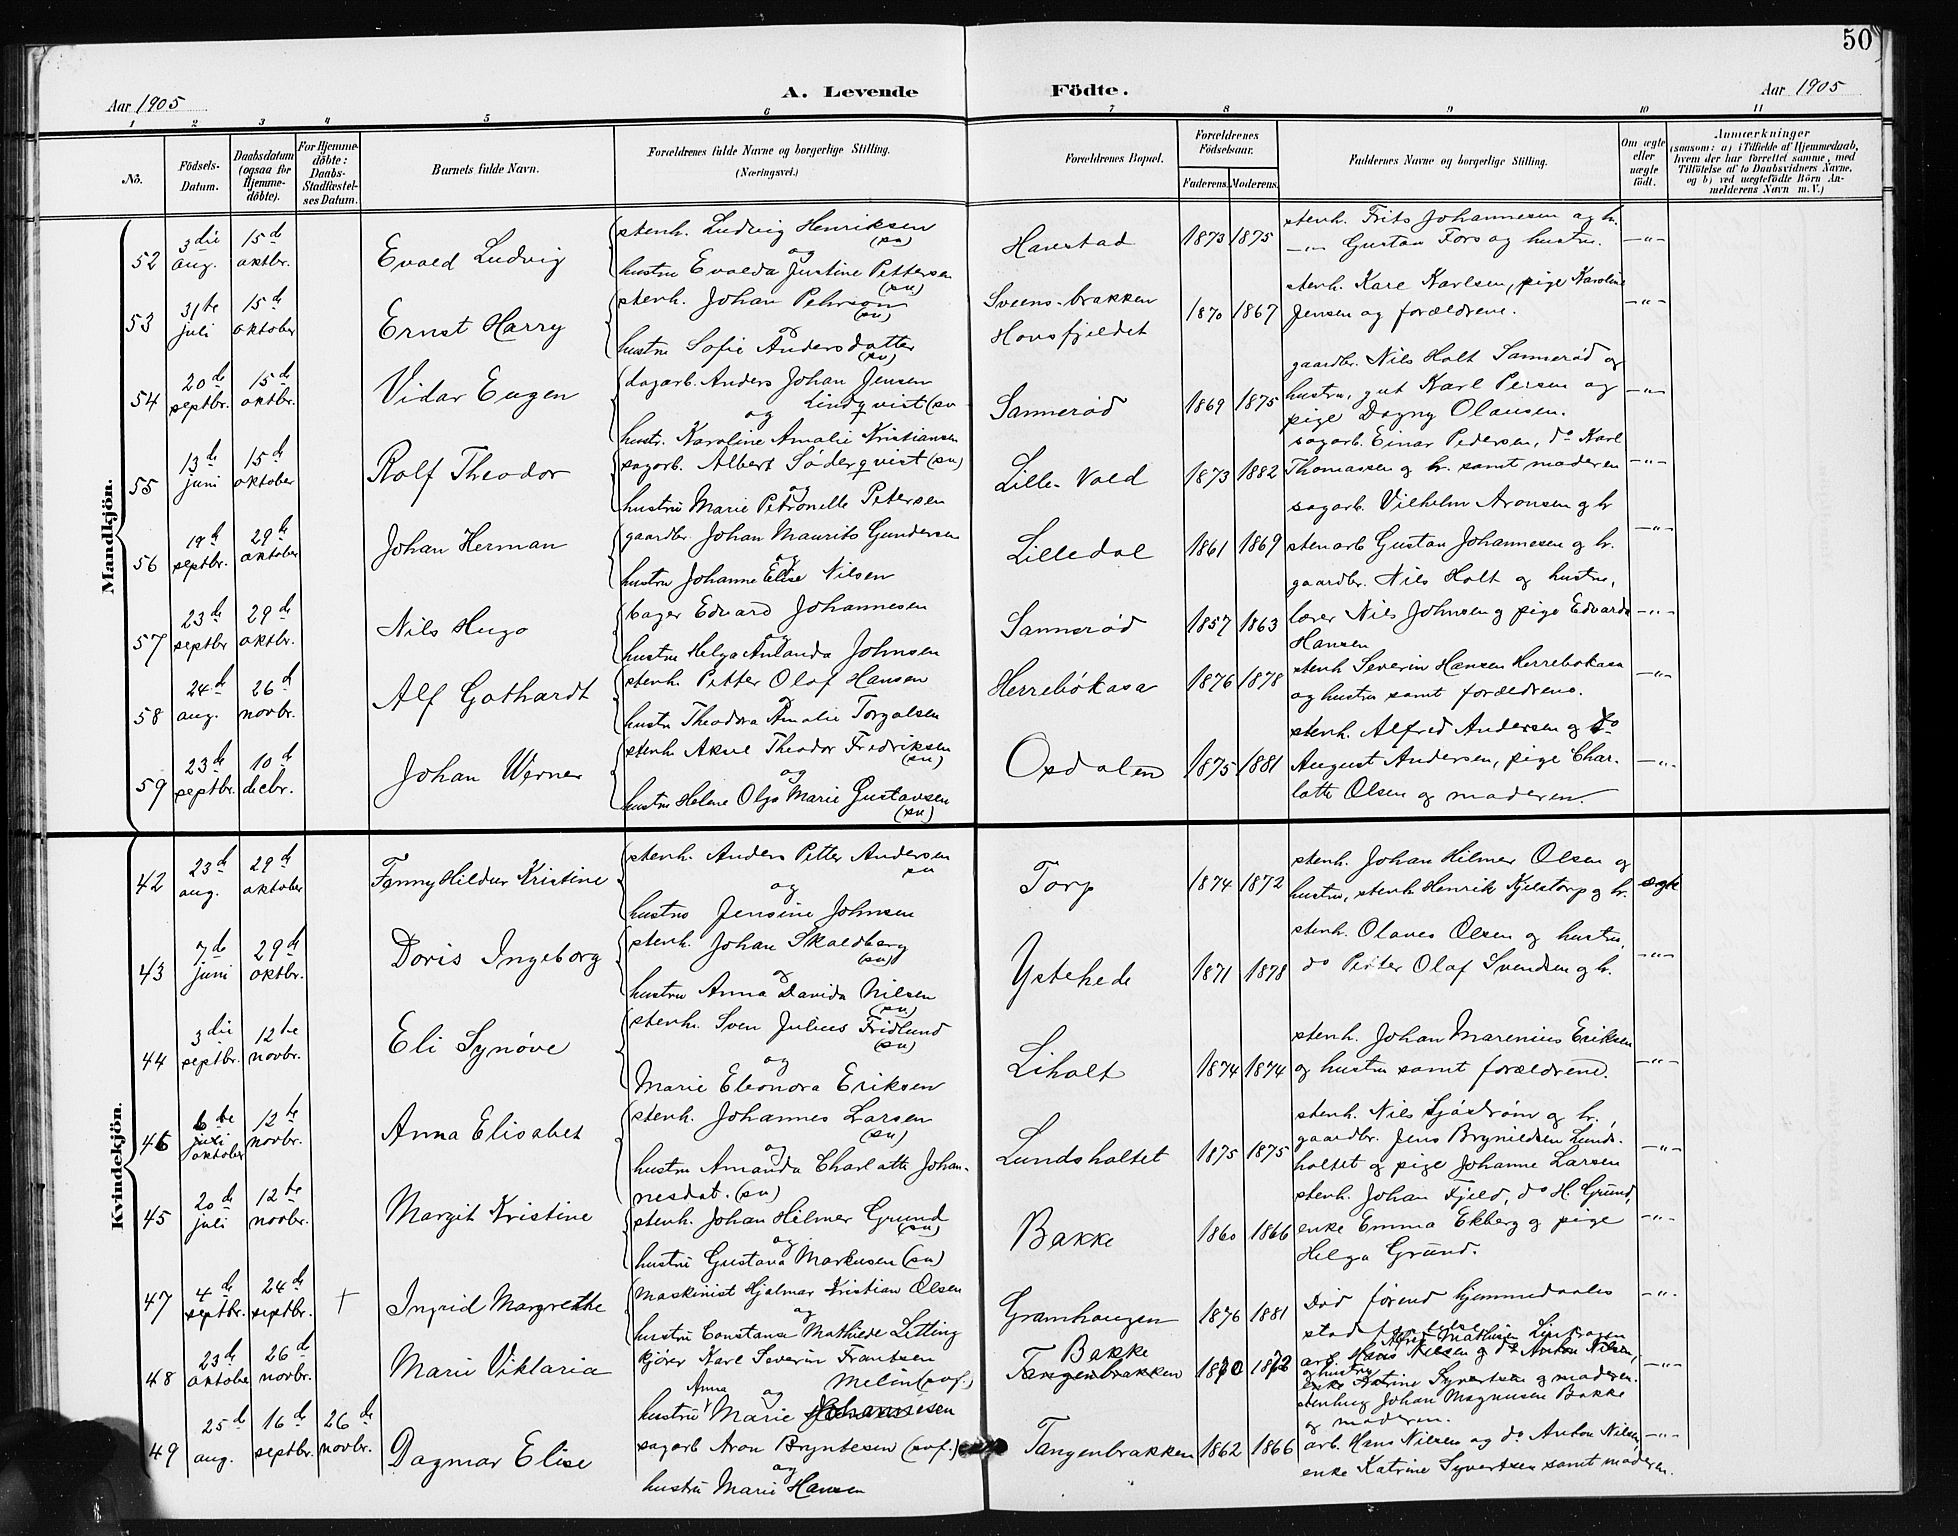 50
Aar 1905
A. Levende Födte.
Aar 1905
1 2 3 4 5 6 7 8 9 10 11
No.
Födsels-Datum.
Daabsdatum (ogsaa for Hjemme-döbte).
For Hjemme-döbte: Daabs-Stadfæstel-ses Datum.
Barnets fulde Navn.
Forældrenes fulde Navne og borgerlige Stilling. (Næringsvei.)
Forældrenes Bopæl.
Forældrenes Födselsaar.
Faderens. Moderens.
Faddernes Navne og borgerlige Stilling.
Om ægte eller uægte födt.
Anmærkninger
(saasom: a) i Tilfælde af Hjemmedaab,
hvem der har forrettet samme, med
Tilföielse af to Daabsvidners Navne,
og b) ved uægtefödte Börn An-
melderens Navn m. V.)
Mandkjön.
52 3die aug. 15de oktbr. Evald Ludvig
stenh. Ludvig Henriksen (sv)
og
hustru Evalda Justine Pettersen (sv)
Havstad 1873 1875
stenh. Frits Johannesen og h.
—"— Gustav Fors og hustru. —"—
53 31te juli 15de oktober Ernst Harry
stenh. Johan Pehrson (sv)
og
hustru Sofie Andersdatter (sv)
Sveens-brakken
Hovsfjeldet 1870 1867
stenh. Kare Karlsen, pige Karoline
Jensen og forældrene. —"—
54 20de septbr. 15de oktbr. Vidar Eugen
dagarb. Anders Johan Jensen
og Lindqvist (sv
hustr. Karoline Amalie Kristiansen
Sannerød 1869 1875
gaardbr. Nils Holt Sannerød og
hustru, gut Karl Persen og
pige Dagny Olausen. —"—
55 13de juni 15de oktober Rolf Theodor
sagarb. Albert Söderqvist (sv)
og
hustru Marie Petronelle Petersen
Lille-Vold 1873 1882
sagarb. Einar Pedersen, do Karl
Thomassen og h. samt moderen —"—
56 18de septbr. 29de oktober Johan Herman
gaardbr. Johan Maurits Gundersen
og
hustru Johanne Elise Nilsen
Lilledal 1861 1869
sagarb. Vilhelm Aronsen og h
stenarb Gustav Johannesen og h. —"—
57 23de septbr 29de oktbr. Nils Hugo
bager Edvard Johannesen
og
hustru Helga Amanda Johnsen
Sannerød 1857 1863
gaardbr. Nils Holt og hustru,
lærer Nils Johnsen og pige Edvarda
Hansen —"—
58 24de aug. 26de novbr. Alf Gothardt
stenh. Petter Olaf Hansen
og
hustru Theodora Amalie Torgalsen
Herrebökasa 1876 1878
stenh Severin Hansen Herrebokasa
og hustru samt forældrene. —"—
59 23de septbr. 10de decbr. Johan Werner
stenh Aksel Theodor Fredriksen (sv)
og
hustru Helene Olga Marie Gustavsen (sv)
Opdalen 1875 1881
stenh. Alfred Andersen og do
August Andersen, pige Char-
lotte Olsen og moderen. —"—
Kvindekjön.
42 23de aug. 29de oktober Fanny Hildur Kristine
stenh. Anders Petter Andersen sv
og
hustru Jensine Johnsen
Torp 1874 1872
stenh. Johan Hilmer Olsen og
hustru, stenh Henrik Kjelstorp og h. ægte
43 7de juni 29de oktbr. Doris Ingeborg
stenh. Johan Skoldberg (sv)
og
hustru Anna Davida Nilsen (sv)
Ystehede 1871 1878
stenh. Olaves Olsen og hustru,
do Petter Olaf Svendsen og h. —"—
44 3die septbr. 12te novbr. Eli Synöve
stenh. Sven Julius Fridlund (sv)
og
Marie Eleonora Eriksen
Liholt 1874 1874
stenh. Johan Marenius Eriksen
og hustru samt forældrene. —"—
46 6te juli oktober 12te novbr. Anna Elisabet
stenh. Johannes Larsen (sv)
og
hustru Amanda Charlotte Johan-
nesdat. (sv)
Lundsholtet 1875 1875
stenh. Nils Sjöström og h.,
gaardbr. Jens Brynildsen Lunds-
holtet og pige Johanne Larsen —"—
45 20de juli 12te novbr. Margit Kristine
stenh. Johan Hilmer Grund (sv)
og
hustru Gustava Markusen (sv)
Bakke 1860 1866
stenh. Johan Fjeld, do H. Grund,
enke Emma Ekberg og pige
Helga Grund. —"—
47 4de septbr. 24de septbr. + Ingrid Margrethe
maskinist Hjalmar Kristian Olsen
og
hustru Constance Mathilde Letting
Gramhaugen 1876 1881
Död förend hjemmedaabs
stadfæstelse —"—
48 23de oktober 26de novbr. Marie Viktoria
kjörer Karl Severin Frantsen
Anna og Melin (sv)
hustru Marie Johannesen
Bakke
Tangenbrakken 1870 1872
arb. Hans Nielsen og do Anton Nilsen,
og hustru
enke Katrine Syvertsen og moderen.
stenhug Johan Magnusen Bakke
og moderen. —"—
49 25de aug. 16de septbr. 26de novbr. Dagmar Elise
sagarb Aron Bryntesen (svf.)
og
hustru Marie Hansen
Tangenbrakken 1862 1866
arb. Hans Nilsen og do Anton Nilsen,
enke Katrine Syvertsen samt moderen. —"—